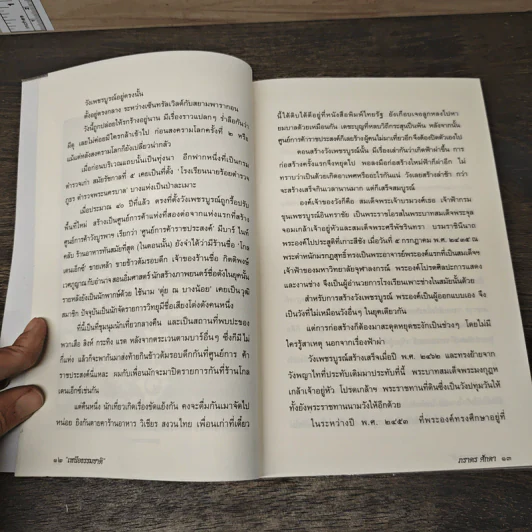 วังเพชรบูรณ์อยู่ตรงนั้น
ตั้งอยู่ตรงกลาง ระหว่างเซ็นทรัลเวิลด์กับสยามพารากอน
วังนี้ถูกปล่อยให้รกร้างอยู่นาน มีเรื่องราวแปลกๆ ร่ำลือกันว่า
มีดุ เลยไม่ค่อยมีใครกล้าเข้าไป ก่อนสงครามโลกครั้งที่ ๒ หรือ
แม้แต่หลังสงครามโลกก็ยังเปลี่ยวเปล่ากลัว
เมื่อก่อนบริเวณแถบนั้นเป็นทุ่งนา อีกฟากหนึ่งที่เป็นกรม
ตำรวจเก่า สมัยรัชกาลที่ ๕ เคยเป็นที่ตั้ง 'โรงเรียนนายร้อยตำรวจ
ภูธร ตำรวจพระนครบาล' บางแห่งเป็นป่าละเมาะ
เมื่อประมาณ ๔๐ ปีที่แล้ว ตรงที่ตั้งวังเพชรบูรณ์ถูกรื้อปรับ
พื้นที่ใหม่ สร้างเป็นศูนย์การค้าแห่งที่สองต่อจากแห่งแรกที่สร้าง
ศูนย์การค้าวังบูรพาฯ เรียกว่า 'ศูนย์การค้าราชประสงค์' มีบาร์ ไนท์
คลับ ร้านอาหารทันสมัยที่สุด (ในตอนนั้น) ยังจำได้ว่ามีร้านชื่อ 'โกล
เดนเอ็กซ์' ขายเหล้า ขายข้าวต้มรอบดึก เจ้าของร้านชื่อ
สมาชิก ปัจจุบันเป็นนักจัดรายการวิทยุมีชื่อเสียงโด่งดังคนหนึ่ง
ที่นี่เป็นที่ชุมนุมนักเที่ยวกลางคืน และเป็นสถานที่พบปะของ
พวกเสือ สิงห์ กระทิง แรด หลังจากตระเวนตามบาร์อื่นๆ ซึ่งก็มีไม่
กี่แห่ง แล้วก็จะพากันมาส่งท้ายกินข้าวต้มรอบดึกกันที่ศูนย์การค้า
ราชประสงค์นี่แหละ ผมกับเพื่อนมักจะมาปิดรายการกันที่ร้านโกล
เดนเอ็กซ์เช่นกัน
แต่คืนหนึ่ง นักเที่ยวเกิดเรื่องขัดแย้งกัน คงจะดื่มกันเมาจัดไป
หน่อย ยิงกันตายคาร้านอาหาร วิเชียร สงวนไทย เพื่อนเก่าที่เดี๋ยว
๑๒ "เหนือธรรมชาติ"
นี้ได้ดิบได้ดีอยู่ที่หนังสือพิมพ์ไทยรัฐ ยังเกือบเจอลูกหลงไปหา
ยมบาลด้วยเหมือนกัน เดชะบุญที่หลบวิถีกระสุนปืนพ้น หลังจากนั้น
ศูนย์การค้าราชประสงค์ก็เลยร้างผู้คนไม่มาเที่ยวอีกจึงต้องปิดตัวเองไป
ตอนสร้างวังเพชรบูรณ์นั้น มีเรื่องเล่ากันว่าเกิดฟ้าผ่าขึ้น การ
ก่อสร้างครั้งแรกจึงหยุดไป พอลงมือก่อสร้างใหม่ฟ้าก็ผ่าอีก ไม่
ทราบว่าเป็นด้วยเกิดอาเพศหรืออะไรกันแน่ วังเลยสร้างล่าช้า กว่า
จะสร้างเสร็จกินเวลานานมาก แต่ก็เสร็จสมบูรณ์
องค์เจ้าของวังก็คือ สมเด็จพระเจ้าบรมวงศ์เธอ เจ้าฟ้ากรม
ขุนเพชรบูรณ์อินทราชัย เป็นพระราชโอรสในพระบาทสมเด็จพระจุล
จอมเกล้าเจ้าอยู่หัวและสมเด็จพระศรีพัชรินทรา บรมราชินีนาถ
พระองค์ไปประสูติที่เกาะสีชัง เมื่อวันที่ ๕ กรกฎาคม พ.ศ. ๒๔๓๕ ณ
เจ้าฟ้าของมหาวิทยาลัยจุฬาลงกรณ์ พระองค์โปรดศิลปะการแสดง
และงานช่าง จึงเป็นผู้อำนวยการโรงเรียนเพาะช่างในสมัยนั้นด้วย
สำหรับการสร้างวังเพชรบูรณ์ พระองค์เป็นผู้ออกแบบเอง จึง
เป็นวังที่ไม่เหมือนวังอื่นๆ ในยุคเดียวกัน
แต่การก่อสร้างก็ต้องมาสะดุดหยุดชะงักเป็นช่วงๆ โดยไม่มี
ใครรู้สาเหตุ นอกจากเรื่องฟ้าผ่า
วังเพชรบูรณ์สร้างเสร็จเมื่อปี พ.ศ. ๒๔๖๒ และทรงย้ายจาก
วังพญาไทที่ประทับเดิมมาประทับที่นี้ พระบาทสมเด็จพระมงกุฎ
เกล้าเจ้าอยู่หัว โปรดเกล้าฯ พระราชทานที่ดินซึ่งเป็นวังปทุมวันให้
ทั้งยังพระราชทานนามวังให้อีกด้วย
ในระหว่างปี พ.ศ. ๒๔๕๓ ที่พระองค์ทรงศึกษาอยู่ที่
ภราดร ศักดา ๑๓